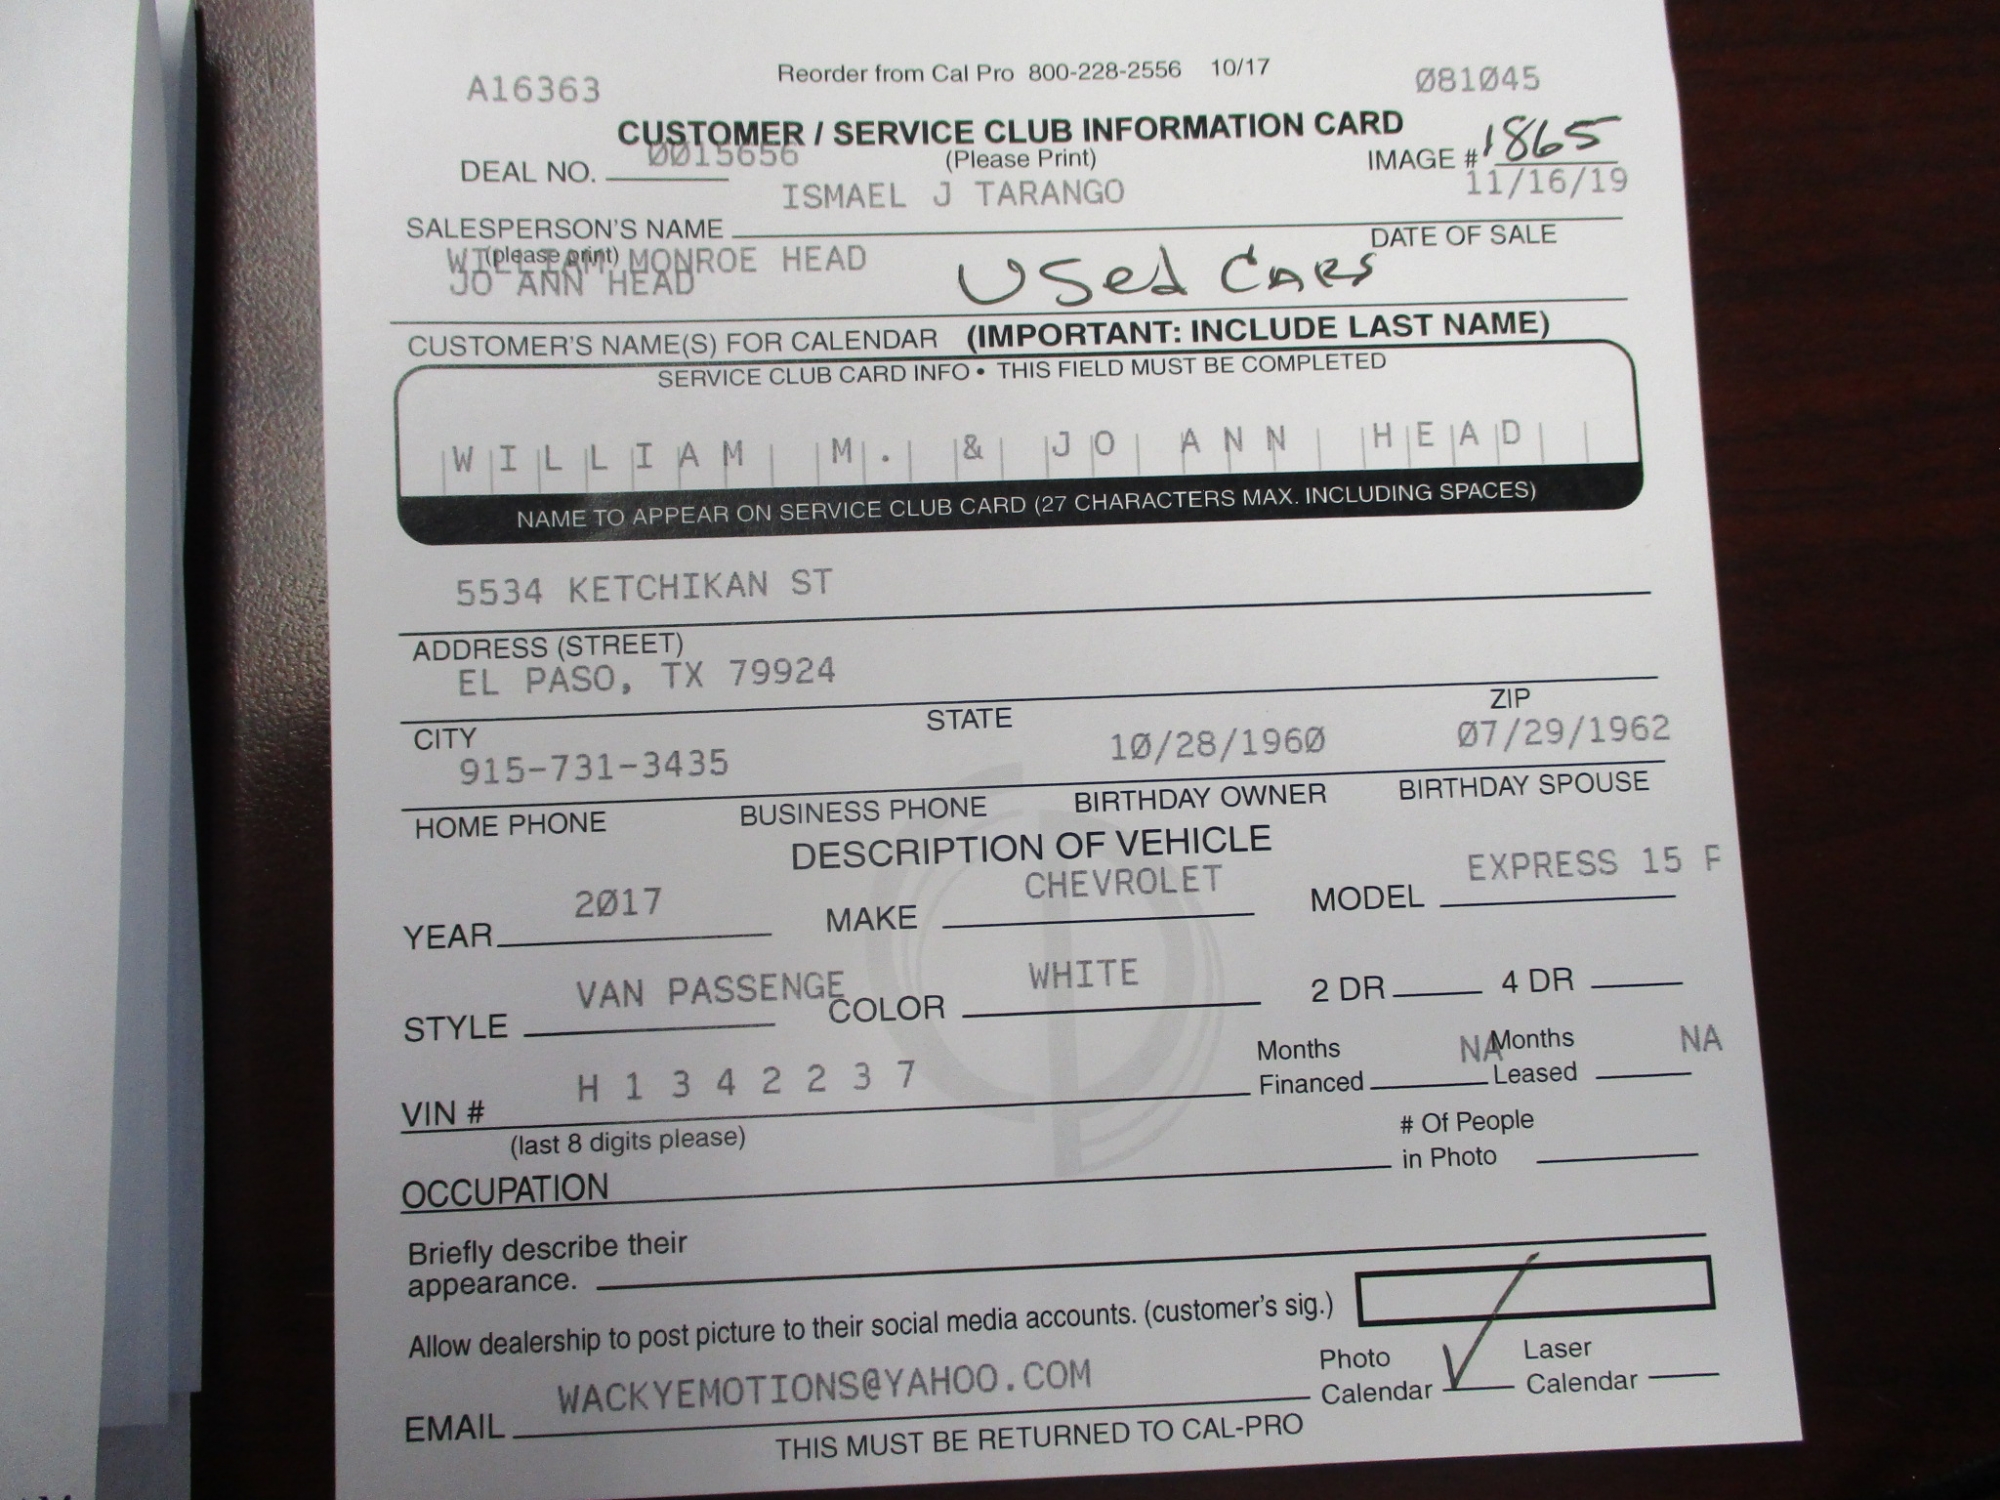 Reorder from Cal Pro 800-228-2556 10/17
A16363 Ø81Ø45
CUSTOMER / SERVICE CLUB INFORMATION CARD
DEAL NO. ØØ15656 (Please Print) IMAGE # 1865
ISMAEL J TARANGO 11/16/19
SALESPERSON'S NAME DATE OF SALE
(please print)
WILLIAM MONROE HEAD
JO ANN HEAD Used Cars
CUSTOMER'S NAME(S) FOR CALENDAR (IMPORTANT: INCLUDE LAST NAME)
SERVICE CLUB CARD INFO • THIS FIELD MUST BE COMPLETED
WILLIAM M. & JO ANN HEAD
NAME TO APPEAR ON SERVICE CLUB CARD (27 CHARACTERS MAX. INCLUDING SPACES)
5534 KETCHIKAN ST
ADDRESS (STREET)
EL PASO, TX 79924
CITY STATE ZIP
915-731-3435 1Ø/28/196Ø Ø7/29/1962
HOME PHONE BUSINESS PHONE BIRTHDAY OWNER BIRTHDAY SPOUSE
DESCRIPTION OF VEHICLE
YEAR 2Ø17 MAKE CHEVROLET MODEL EXPRESS 15 P
STYLE VAN PASSENGE COLOR WHITE 2 DR 4 DR
VIN # H 1 3 4 2 2 3 7 Months Financed NA Months Leased NA
(last 8 digits please)
OCCUPATION # Of People in Photo
Briefly describe their
appearance.
Allow dealership to post picture to their social media accounts. (customer's sig.)
EMAIL WACKYEMOTIONS@YAHOO.COM Photo Calendar Laser Calendar
THIS MUST BE RETURNED TO CAL-PRO